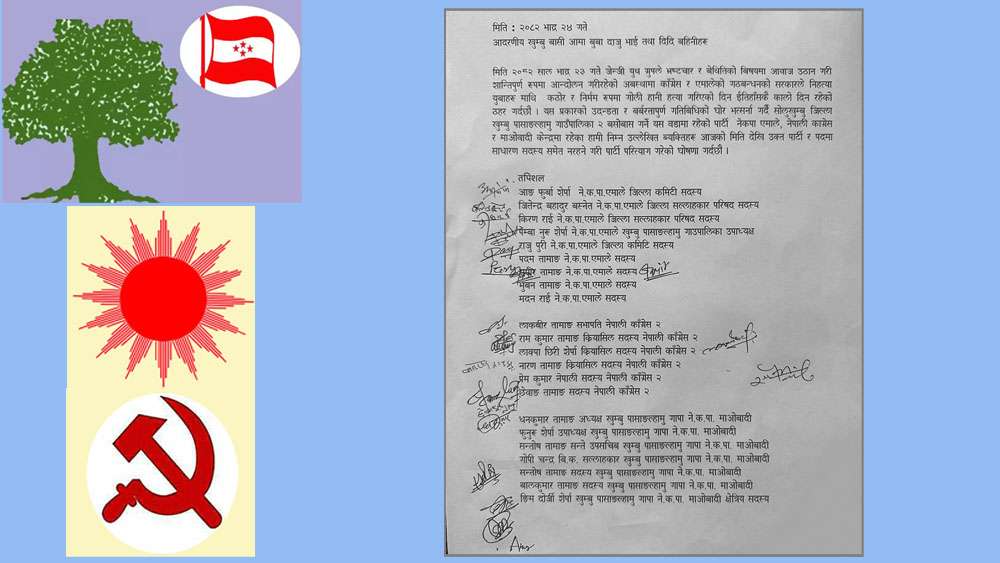 मिति : २०८२ भाद्र २४ गते
आदरणीय खुम्बु बासी आमा बुबा दाजु भाई तथा दिदि बहिनीहरू
मिति २०८२ साल भाद्र २३ गते जेन्जी युथ ग्रुपले भ्रष्टचार र बेथितिको बिषयमा आवाज उठान गरी
शान्तिपूर्ण रूपमा आन्दोलन गरीरहेको अबस्थामा काँग्रेस र एमालेको गठबन्धनको सरकारले निहत्था
युबाहरू माथि कठोर र निर्मम रूपमा गोली हानी हत्या गरिएको दिन ईतिहाँसकै कालो दिन रहेको
ठहर गर्दछौं । यस प्रकारको उदन्डता र बर्बरतापूर्ण गतिबिधिको घोर भत्सर्ना गर्दै सोलुखुम्बु जिल्ला
खुम्बु पासाङल्हामु गाउँपालिका २ बसोबास गर्ने यस वडामा रहेको पार्टी नेकपा एमाले, नेपाली काग्रेस
र माओवादी केन्द्रमा रहेका हामी निम्न उल्लेखित ब्यक्तिहरू आजको मिति देखि उक्त पार्टी र पदमा
साधारण सदस्य समेत नरहने गरी पार्टी परित्याग गरेको घोषणा गर्दछौं ।
तपिशल
आङ फुर्बा शेर्पा ने.क.पा.एमाले जिल्ला कमिटी सदस्य
जितेन्द्र बहादुर बस्नेत ने.क.पा.एमाले जिल्ला सल्लाहकार परिषद सदस्य
किरण राई ने.क.पा.एमाले जिल्ला सल्लाहकार परिषद सदस्य
पेम्बा नुरू शेर्पा ने.क.पा.एमाले खुम्बु पासाङल्हामु गाउपालिका उपाध्यक्ष
राजु पुरी ने.क.पा.एमाले जिल्ला कमिटि सदस्य
पदम तामाङ ने.क.पा.एमाले सदस्य
तामाङ ने.क.पा.एमाले सदस्य
भुबन तामाङ ने.क.पा.एमाले सदस्य
मदन राई ने.क.पा.एमाले सदस्य
लाकबीर तामाङ सभापति नेपाली काँग्रेस २
राम कुमार तामाङ क्रियासिल सदस्य नेपाली काँग्रेस २
लाक्पा छिरी शेर्पा क्रियासिल सदस्य नेपाली काँग्रेस २
नारण तामाङ क्रियासिल सदस्य नेपाली काँग्रेस २
प्रेम कुमार नेपाली सदस्य नेपाली काँग्रेस २
छेवाङ तामाङ सदस्य नेपाली काँग्रेस २
धनकुमार तामाङ अध्यक्ष खुम्बु पासाङल्हामु गापा ने.क.पा. माओबादी
फुनुरू शेर्पा उपाध्यक्ष खुम्बु पासाङल्हामु गापा ने.क.पा. माओबादी
सन्तोष तामाङ सन्ते उपसचिब खुम्बु पासाङल्हामु गापा ने.क.पा. माओबादी
गोपी चन्द्र बि.क. सल्लाहकार खुम्बु पासाङल्हामु गापा ने.क.पा. माओबादी
सन्तोष तामाङ सदस्य खुम्बु पासाङल्हामु गापा ने.क.पा. माओबादी
बालकुमार तामाङ सदस्य खुम्बु पासाङल्हामु गापा ने.क.पा. माओबादी
ङिम दोर्जी शेर्पा खुम्बु पासाङल्हामु गापा ने.क.पा. माओबादी क्षेत्रिय सदस्य